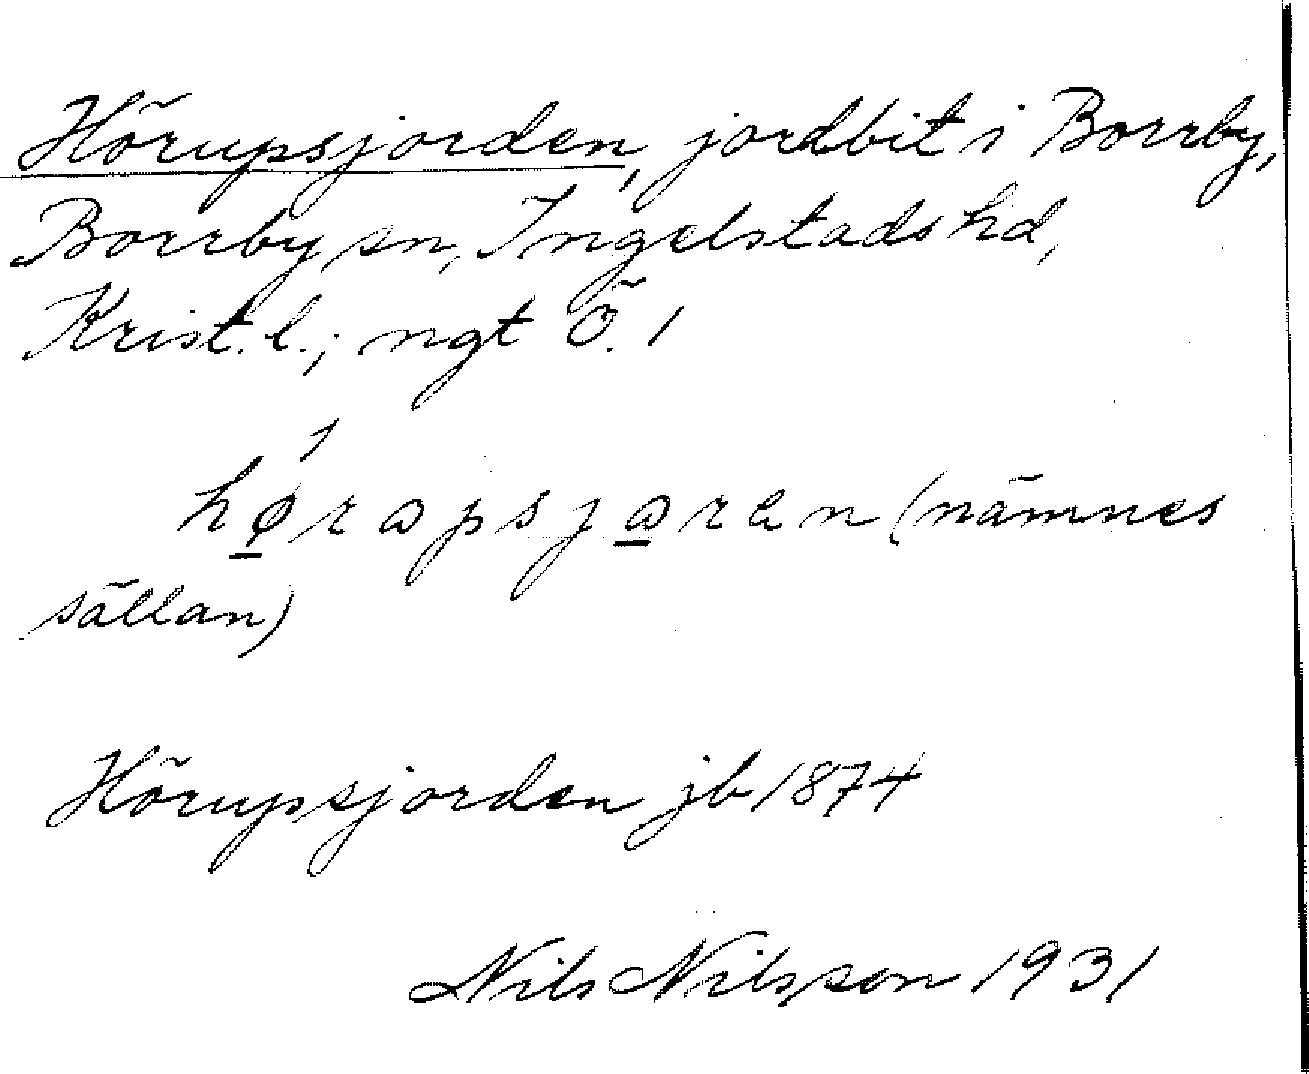 Hörupsjorden, jordbit i Borrby,
Borrby sn, Ingelstads hd,
Krist. l.; ngt Ö. 1
hø̱rapsja̱ren (nämnes
sällan)
Hörupsjorden jb 1874
Nils Nilsson 1931